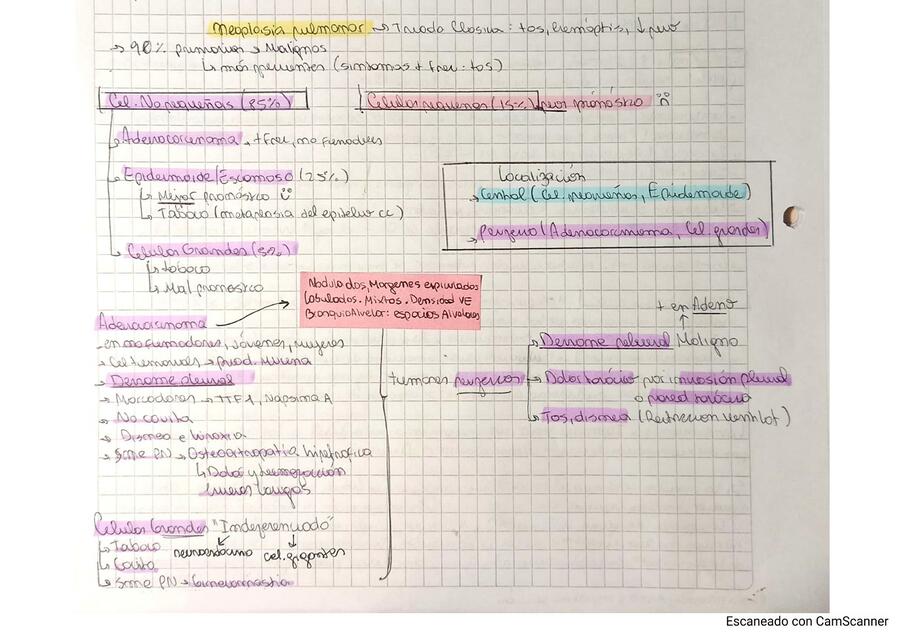 Neoplasia pulmonar → Triada Clasica: tos, hemóptisis, ↓ peso
→ 90% primarios → Malignos
↳ más frecuentes (sintomas + frec: tos)
Cel. No pequeñas (85%)
Celulas pequeñas (15%) peor pronóstico
Adenocarcinoma → + frec, no fumadores
Epidermoide/Escamoso (25%)
↳ Mejor pronóstico
↳ Tabaco (metaplasia del epitelio cc)
Celulas Grandes (5%)
↳ tabaco
↳ Mal pronóstico
Localización
→ Central (Cel. pequeñas, Epidermoide)
→ periferia (Adenocarcinoma, Cel. grandes)
Nodulados, Margenes espiculados
lobulados. Mixtos. Densidad VE
BronquioAlveolar: espacios Alveolares
Adenocarcinoma
- en no fumadores, jóvenes, mujeres
- Cel tumorales → prod. Mucina
→ Derrame pleural
→ Marcadores → TTF1, Napsina A
→ No cavita
→ Disnea e hipoxia
→ Sme PN → Osteoartropatia hipertrofica
↳ Dolor y
huesos largos
tumores perifericos
+ en Adeno
↑
Derrame pleural Maligno
→ Dolor torácico por invasión pleural
o pared torácica
Tos, disnea (Restriccion ventilat)
Celulas Grandes "Indiferenciado"
↳ Tabaco
neuroendocrino cel. gigantes
↳ Cavita
↳ Sme PN → Ginecomastia
Escaneado con CamScanner